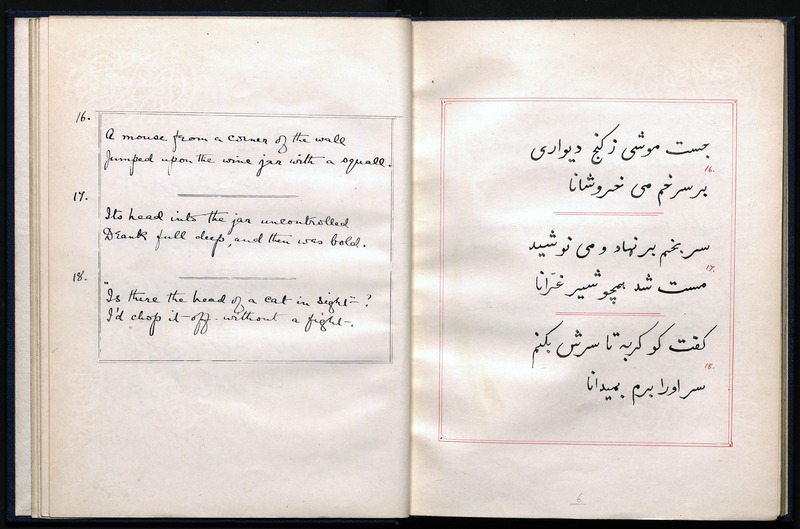 16.
A mouse from a corner of the wall
Jumped upon the wine jar with a squall.
17.
Its head into the jar uncontrolled
Drank full deep, and then was bold.
18.
"Is there the head of a cat in sight"?
I'd chop it off without a fight.
جست موشی ز کنج دیواری
16.
بر سر خم می خروشانا
سر بخم بر نهاد و می نوشید
17.
مست شد همچو شیر غرّانا
گفت کو گربه تا سرش بکنم
18.
سر او را برم بمیدانا
6